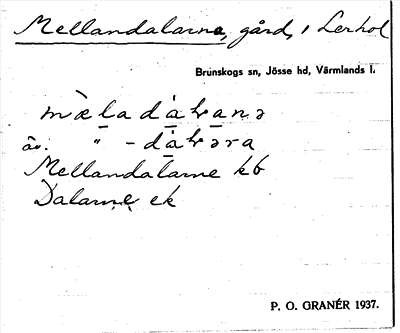 Mellandalarna, gård, i Lerhol
Brunskogs sn, Jösse hd, Värmlands l.
mèladàƚana
äv. " -dàƚara
Mellandalarne kb
Dalarne ek
P. O. GRANÉR 1937.